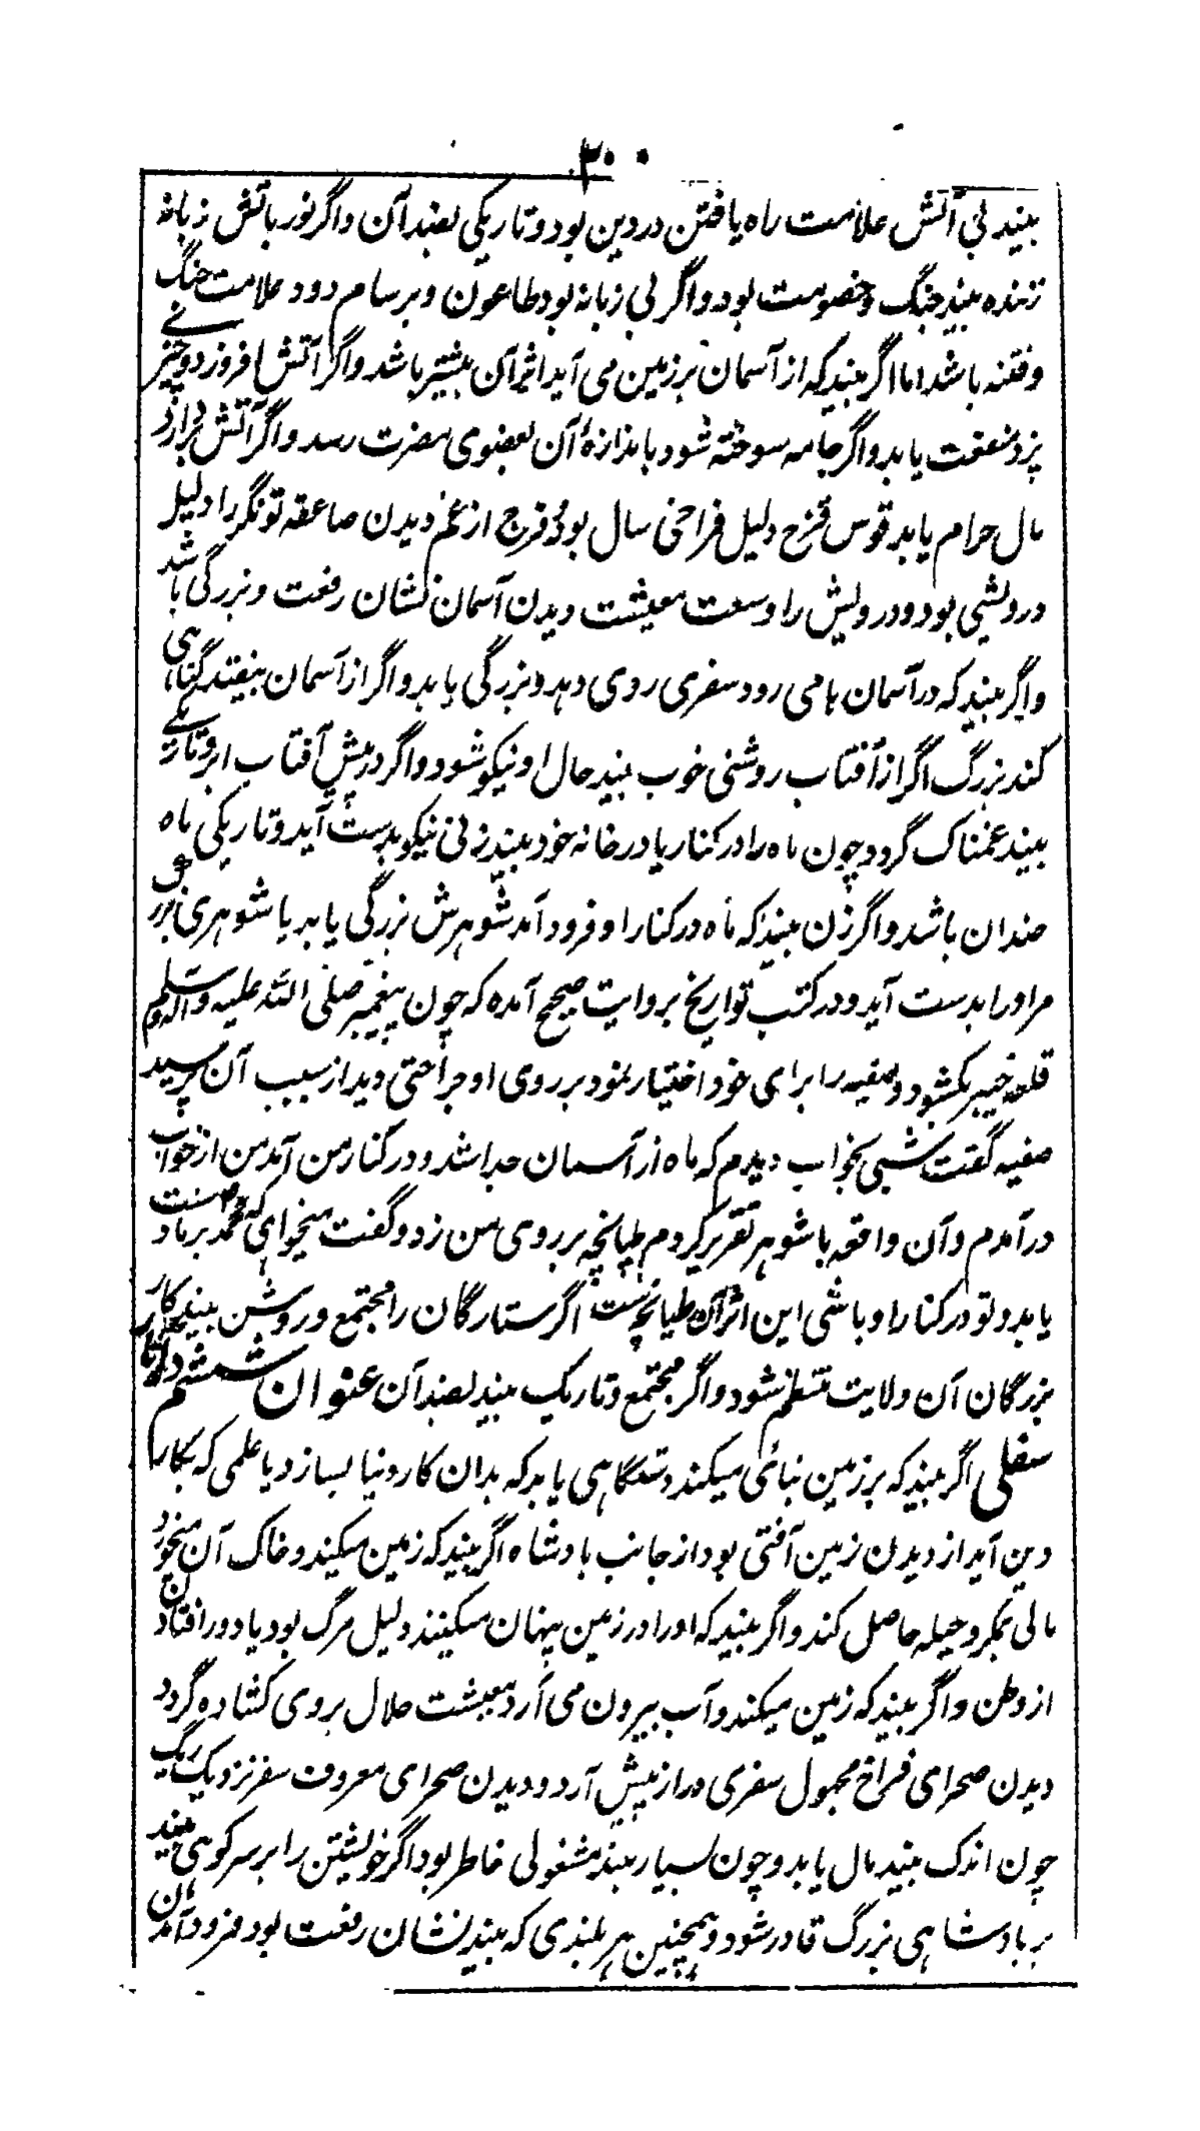 ۳۰۰
بیند بی آتش علامت راه یافتن در دین بود و تاریکی بضد آن و اگر نور با تش زبانه
زننده بیند جنگ و خصومت بود و اگر بی زبانه بود طاعون و برسام دود علامت جنگ
و فتنه باشد اما اگر بیند که از آسمان بر زمین می آید اثر آن بیشتر باشد و اگر آتش افروزد و چیزے
پزد منفعت یابد و اگر جامه سوخته شود باندازهٔ آن بعضوی مضرت رسد و اگر آتش بردارد
مال حرام یابد قوس قزح دلیل فراخی سال بود و فرج از غم دیدن صاعقه تونگر را دلیل
درویشی بود و درویش را وسعت معیشت دیدن آسمان نشان رفعت و بزرگی باشد
و اگر بیند که در آسمان ها می رود سفری روی دهد و بزرگی یابد و اگر از آسمان بیفتد گناهی
کند بزرگ اگر از آفتاب روشنی خوب بیند حال او نیکو شود و اگر در پیش آفتاب ابر و تاریکے
بیند غمناک گردد چون ماه را در کنار یا در خانه خود بیند زنی نیکو بدست آید و تاریکی ماه
ضد آن باشد و اگر زن بیند که ماه در کنار او فرود آمد شوهرش بزرگی یابد یا شوهری بزرگ
مر او را بدست آید و در کتب تواریخ بروایت صحیح آمده که چون پیغمبر صلی الله علیه و اله وسلم
قلعه خیبر بکشود و صفیه را برای خود اختیار نمود بر روی او جراحتی دید از سبب آن پرسید
صفیه گفت شبی بخواب دیدم که ماه از آسمان جدا شد و در کنار من آمد من از خواب
درآمدم و آن واقعه با شوهر تقریر کردم طپانچه بر روی من زد و گفت میخواهی که محمد بر ما دست
یابد و تو در کنار او باشی این اثر آن طپانچه است اگر ستارگان را مجتمع و روشن بیند کار
بزرگان آن ولایت منتظم شود و اگر مجتمع و تاریک بیند بضد آن عنوان ششم در آثار
سفلی اگر بیند که بر زمین بنائی میکند دستگاهی یابد که بدان کار دنیا بسازد یا علمی که بکار
دین آید از دیدن زمین آفتی بود از جانب بادشاه اگر بیند که زمین میکند و خاک آن میخورد
مالی بمکر و حیله حاصل کند و اگر بیند که او را در زمین پنهان میکنند دلیل مرگ بود یا دور افتادن
از وطن و اگر بیند که زمین میکند و آب بیرون می آرد معیشت حلال بروی کشاده گردد
دیدن صحرای فراخ مجهول سفری دراز پیش آرد و دیدن صحرای معروف سفر نزدیک ریگ
چون اندک بیند مال یابد و چون بسیار بیند مشغولی خاطر بود اگر خویشتن را بر سر کوهی بیند
بر بادشاهی بزرگ قادر شود و همچنین هر بلندی که بیند نشان رفعت بود و فرود آمدن